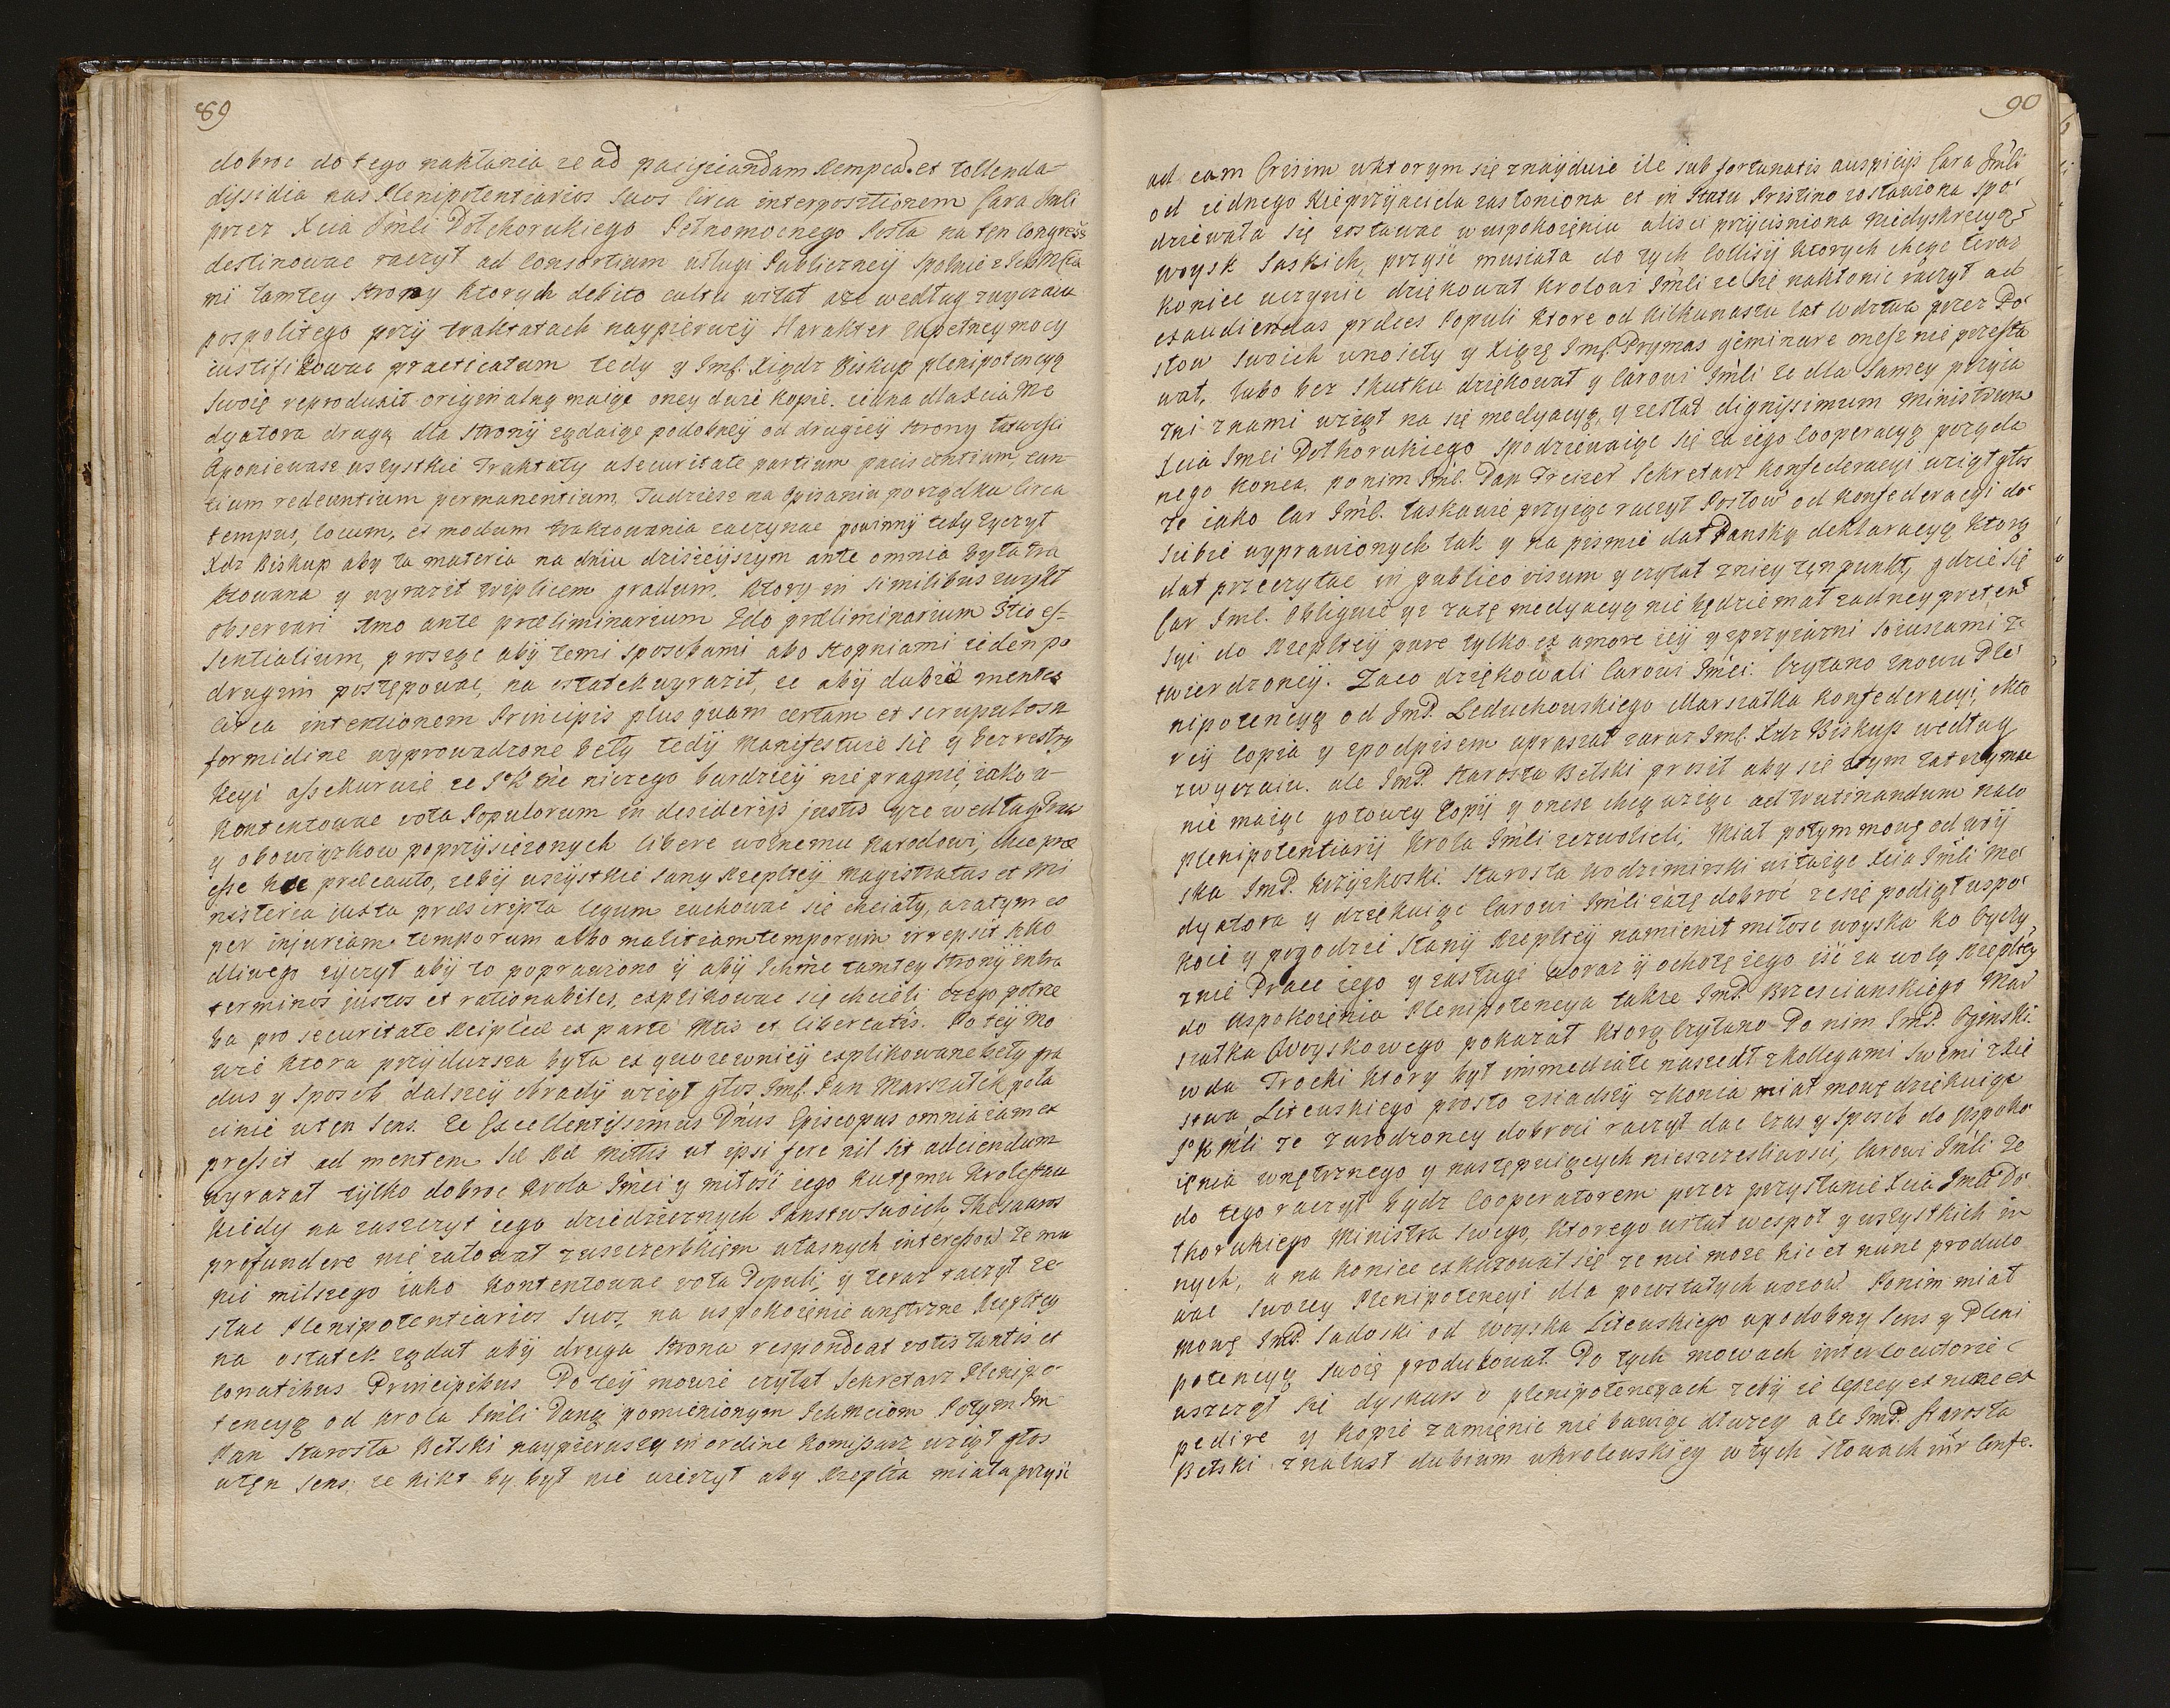 89
dobroć do tego nakłania ze ad pacificandam Rempca. et tollenda
dissidia nas Plenipotentiarios suos circa interpositionem Cara Jmści
przez Xcia Jmści Dołhorukiego Pełnomocnego Posła na ten Congress
destinować raczył ad Consortium usługi Publiczney spolnie z Ichmścia
mi tamtey strony ktorych debito cultu witał aże według zwyczaiu
pospolitego przy traktatach naypierwey Harakter zupełney mocy
iustifikować practicatum tedy y Jmś. Xiądz Biskup plenipotencyą
swoię reprodukit originalną maiąc oney dwie kopie. iedna dla Xcia Me
dyatora drugą dla strony ządaiąc podobney od drugiey strony
A poniewasz wszystkie Traktaty a securitate partium paciscentium, eun
tium redeuntium permanentium Tudziesz na spisaniu porządku circa
tempus, locum, et modum traktowania zaczynac powinny tedy życzył
Xdz Biskup aby ta materia na dniu dzisieyszym ante omnia była tra
ktowana y wyraził triplicem gradum. Ktory in similibus zwykł
observari 1mo ante praeliminarium 2do praeliminarium 3tio es-
sentialium, prosząc aby temi sposobami abo stopniami ieden po
drugim postępować, na ostatek wyraził, ze aby dubiæ mentes
circa intentionem Principis plus quam certam et scrupulosa
formidine wyprowadzone były tedy Manifestuie się y bez restry
kcyi assekuruie ze JKMć niczego bardziey nie pragnie, iako u-
kontentować vota Populorum in desiderijs justis yże według Praw
y obowiązkow poprzysiężonych libere wolnemu Narodowi, chce præ
esse hoc præcauto, zeby wszystkie stany Rzepltey Magistratus et Mi
nisteria iuxta præscripta legum zachować się chciały, a zatym co
per injuriam temporum albo malitiam temporum irrepsit szko
dliwego zyczył aby to poprawiono y aby Ichmć tamtey strony intra
terminos justos et rationabiles, explikować się chcieli czego potrze
ba pro securitate Reiplcæ ex parte Mttis et libertatis. Po tey mo
wie ktora przydłuzsza była ex quo zewnicy explikowane były gra
dus y sposob dalszey obrady wziął głos Jmś. Pan Marszałek po ła
cinie w ten sens. Ze Excellentissimus Dnus Episcopus omnia iam ex
pressit ad mentem Sæ Ræ Mittis ut ipsi fere nil sit adiciendum
wyrazał tylko dobroć Krola Jmści y miłosi iego ku temu Krolestwu
kiedy na zaszczyt iego dziedzicznych Panstw swoich, Thesauros
profundere nie załował z uszczerbkiem własnych interessow Ze mu
nic milszego iako kontentować vota Populi, y teraz raczył ze-
słać Plenipotentiarios suos na uspokoienie wnętrzne Rzepltey
na ostatek ządał aby druga strona respondeat votis tantis et
conatibus Principibus Po tey mowie czytał Sekretarz Plenipo-
tencyą od Krola Jmści Daną pomienionym Ichmciom Potym Jm
Pan Starosta Bełski naypierwszy in ordine Komissarz wziął głos
w ten sens; ze nikt by był nie wierzył aby Rzeplta miała przyść
90
ad eam Crisim w ktorym się znayduie ile sub fortunatis auspicijs Cara Jmści
od iednego Nieprzyiaciela zasłoniona et in statu Pristino zostawiona spo-
dziewała się zostawać w uspokoieniu aliści przyciśniona niedyskrecyą
woysk Saskich, przyść musiała do tych Collisij ktorych chcąc teraz
koniec uczynić dziękował Krolowi Jmści ze się nakłonić raczył ad
exaudiendas preces Populi ktore od kilkunastu lat wdrtał przez Po-
słow swoich wnosiły y Xiążę Jmś. Prymas geminare onesz nie przesta
wał. lubo bez skutku dziękował y Carowi Jmści ze dla samey przyia
zni z nami wziął na się medyacyą, y zesłał dignissimum Ministrum
Xcia Jmci Dołhorukiego spodziewaiąc się za iego Cooperacyą pożąda
nego konca. po nim Jmś. Pan Treizer Sekretarz Konfederacyi wziął głos
ze iako Car Jmś. łaskawie przyiąć raczył Posłow od Konfederacyi do
siebie wyprawionych tak y na pismie dał Pańską deklaracyą ktorą
dał przeczytać in publico visum y czytał z niey ten punkt, gdzie się
Car Jmś. obliguie yż zatę medyacyą nie będzie miał zadney preten-
syi do Rzepltey pure tylko ex amore iey y z przyiazni sąsiuszami z-
twierdzoney. Zaco dziękowali Carowi Jmści. Czytano znowu Ple-
nipotencyą od Jmś. Leduchowskiego Marszałka Konfederacyi, kto
rey Copia y z podpisem upraszał zaraz Jmś. Xdz Biskup według
zwyczaiu. ale Jmś. Starosta Bełski prosił aby się z tym zatrzymać
nie maiąc gotowey Kopij y onesz chcą wziąć ad trutinandum naco
plenipotentiarij Krola Jmści zezwolili. Miał potym mowę od woy
ska Jmś. Krżyżkoski. Starosta Wodzimirski witaiąc Xcia Jmści Me-
dyatora y dziękuiąc Carowi Jmści zatę dobroć ze się podiął uspo-
koić y pogodzić stany Rzepltey namienił miłość woyska ku Oyczy-
znie Prace iego y zasługi a oraz y ochotę iego iść za wolą Rzepltey
do Uspokoienia Plenipotencya takze Jmś. Brzesciańskiego Mar
szałka Woyskowego pokazał ktorą Czytano. Po nim Jmś. Ogiński.
wda Trocki ktory był immediate naszedł z kollegami swemi z Xię
stwa Litewskiego prosto zsiadszy z konia miał mowę dziękuiąc
JKMści ze z wrodzoney dobroci raczył dać Czas y sposob do uspoko-
ienia wnętrznego y następuiących nieszczesliwości, Carowi Jmści ze
do tego raczył bydz Cooperatorem przez przysłanie Xcia Jmści Do-
łhorukiego Ministra swego, ktorego witał wespoł y wszystkich in
nych, a na koniec exkuzował się ze nie moze hic et nunc produko
wać swoiey Plenipotencyi dla pozostałych wozow. Ponim miał
mowę Jmś. Sadoski od Woyska Litewskiego w podobny sens y Pleni
potencyą swoię produkował. Po tych mowach interlocutorie
wszczął się dyskurs o plenipotencyach zeby ie lepiey ex nunc ex
pedire y kopie zamienić nie bawiąc dłuzey ale Jmś. Starosta
Bełski znalazł dubium w krolewskiey w tych słowach inr Confe.